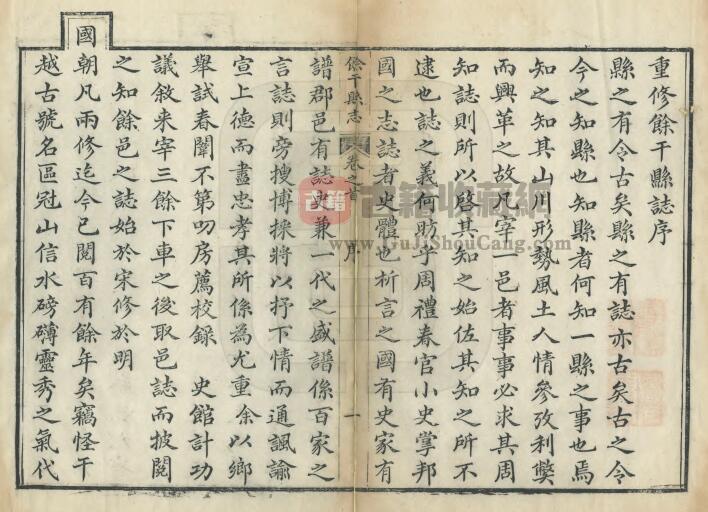 重修餘干縣誌序
縣之有令古矣縣之有誌亦古矣古之令
今之知縣也知縣者何知一縣之事也焉
知之知其山川形勢風土人情參攷利弊
而興革之故凡宰一邑者事事必求其周
知誌則所以啟其知之始佐其知之所不
逮也誌之義何昉乎周禮春官小史掌邦
國之志誌者史體也析言之國有史家有
餘干縣志 卷之首 序 一
譜郡邑有誌史兼一代之盛譜係百家之
言誌則旁搜博採將以抒下情而通諷諭
宣上德而盡忠孝其所係為尤重余以鄉
舉試春闈不第四房薦校錄 史館計功
議敘来宰三餘下車之後取邑誌而披閱
之知餘邑之誌始於宋修於明
國朝凡兩修迄今已閱百有餘年矣竊怪干
越古號名區冠山信水磅礴靈秀之氣代
古籍收藏網
www.GuJiShouCang.com
古籍